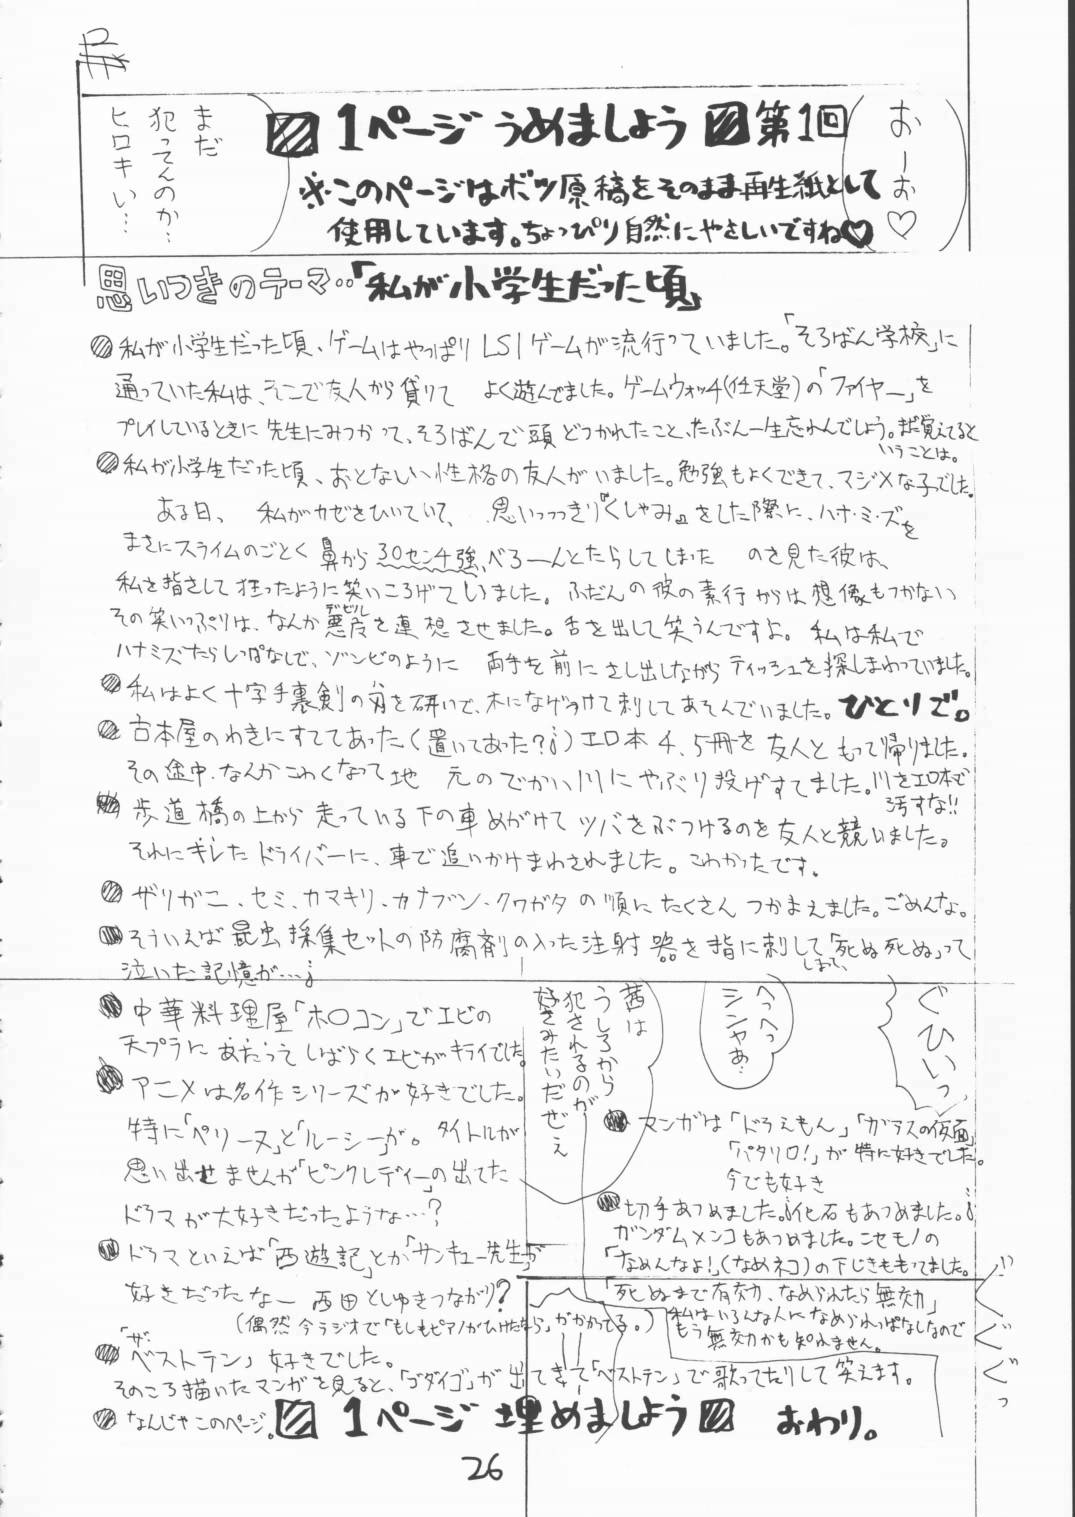 まだ
犯ってんのか…
ヒロキい…
1ページうめましょう 第1回
おーお♡
※このページはボツ原稿をそのまま再生紙として
使用しています。ちょっぴり自然にやさしいですね♡
思いつきのテーマ…「私が小学生だった頃」
私が小学生だった頃、ゲームはやっぱりLSIゲームが流行っていました。「そろばん学校」に
通っていた私は、そこで友人から貸りて よく遊んでました。ゲームウォッチ(任天堂)の「ファイヤー」を
プレイしているときに先生にみつかって、そろばんで頭どつかれたこと、たぶん一生忘れんでしょう。まだ覚えてると
いうことは。
私が小学生だった頃、おとなしい性格の友人がいました。勉強もよくできて、マジメな子でした。
ある日、 私がカゼをひいていて、 思いっっきり『くしゃみ』をした際に、ハナ・ミ・ズを
まさにスライムのごとく鼻から30センチ強、べろーんとたらしてしまった のを見た彼は、
私を指さして狂ったように笑いころげていました。ふだんの彼の素行からは想像もつかない
その笑いっぷりは、なんか悪魔(デビル)を連想させました。舌を出して笑うんですよ。私は私で
ハナミズたらしっぱなしで、ゾンビのように 両手を前にさし出しながらティッシュを探しまわっていました。
私はよく十字手裏剣の角を研いで、木になげつけて刺してあそんでいました。ひとりで。
古本屋のわきにすててあった(置いてあった?)エロ本4、5冊を友人ともって帰りました。
その途中、なんかこわくなって地 元のでかい川にやぶり投げすてました。川をエロ本で
汚すな!!
歩道橋の上から走っている下の車めがけてツバをぶつけるのを友人と競いました。
それにキレたドライバーに、車で追いかけまわされました。こわかったです。
ザリガニ、セミ、カマキリ、カナブン、クワガタの順にたくさんつかまえました。ごめんな。
そういえば昆虫採集セットの防腐剤の入った注射器を指に刺してしまって、「死ぬ死ぬ」って
泣いた記憶が…
中華料理屋「ホ〇コン」でエビの
天プラにあたってしばらくエビがキライでした。
アニメは名作シリーズが好きでした。
特に「ペリーヌ」と「ルーシー」が。タイトルが
思い出せませんが「ピンクレディー」の出てた
ドラマが大好きだったような…?
ドラマといえば「西遊記」とか「サンキュー先生」が
好きだったなー 西田としゆきつながり?
(偶然今ラジオで「もしもピアノがひけたなら」がかかってる。)
「ザ・ベストテン」好きでした。
そのころ描いたマンガを見ると、「ゴダイゴ」が出てきて「ベストテン」で歌ってたりして笑えます。
なんじゃこのページ。
茜は
うしろから
犯されるのが
好きみたいだぜぇ
へっへっ
シンヤあ…
ぐひいっ
マンガは「ドラえもん」「ガラスの仮面」
「パタリロ!」が特に好きでした。
今でも好き
切手あつめました。化石もあつめました。
ガンダムメンコもあつめました。ニセモノの
「なめんなよ!」(なめネコ)の下じきももってました。
「死ぬまで有効、なめられたら無効」
私はいろんな人になめられっぱなしなので
もう無効かも知れません。
ぐぐぐっ
1ページ埋めましょう おわり。
26